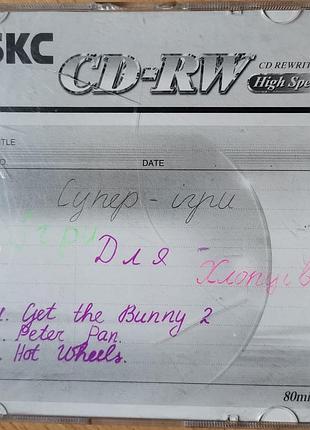 SKC
CD-RW
CD REWRIT
High Spe
TITLE
NO DATE
Супер - ігри
ігри
Для
Хлопців
1. Get the Bunny 2
. Peter Pan.
. Hot Wheels.
80mi